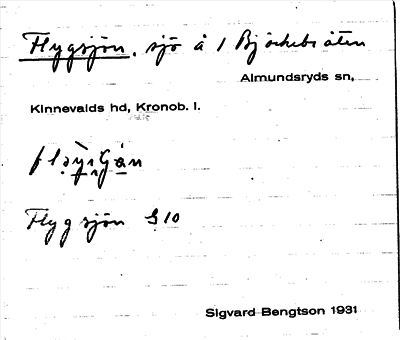 Flygsjön. sjö å 1 Björkebråten
Almundsryds sn,
Kinnevalds hd, Kronob. l.
Flygsjön G10
Sigvard Bengtson 1931